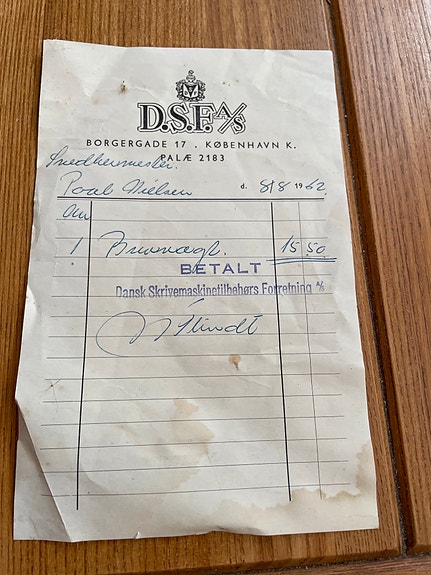 D.S.F. A/S
BORGERGADE 17 . KØBENHAVN K.
PALÆ 2183
Snedkermester
Poul Nielsen d. 8/8 1962.
1 Brevvægt. 15 50
BETALT
Dansk Skrivemaskinetilbehørs Forretning A/S